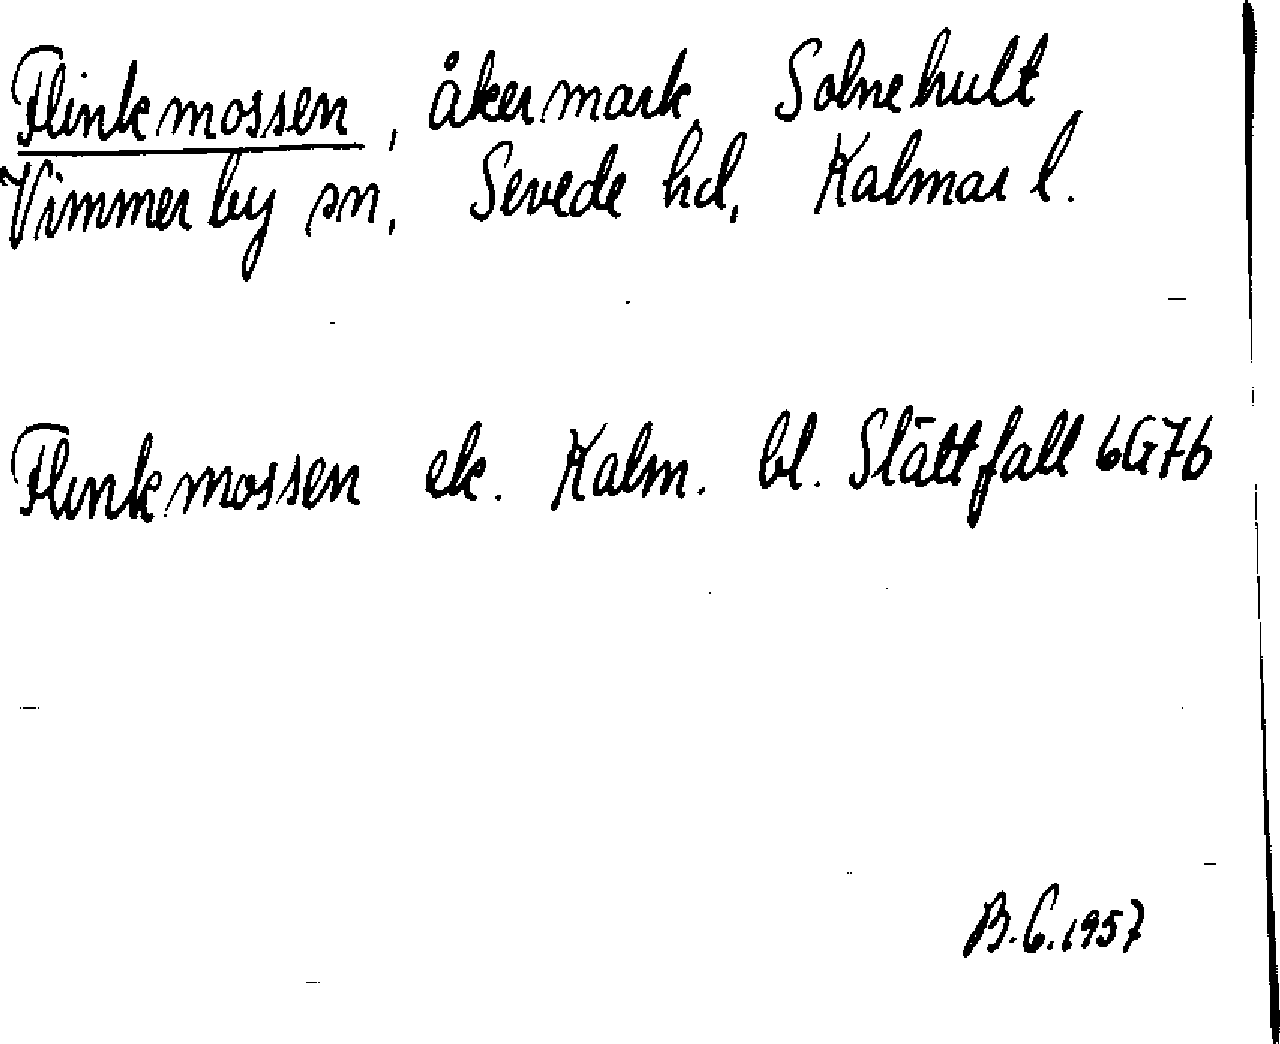 Flinkmossen, åkermark, Solnehult
Vimmerby sn, Sevede hd, Kalmar l.
Flinkmossen ek. Kalm. bl. Slättfall 6G7b
B.G.1957